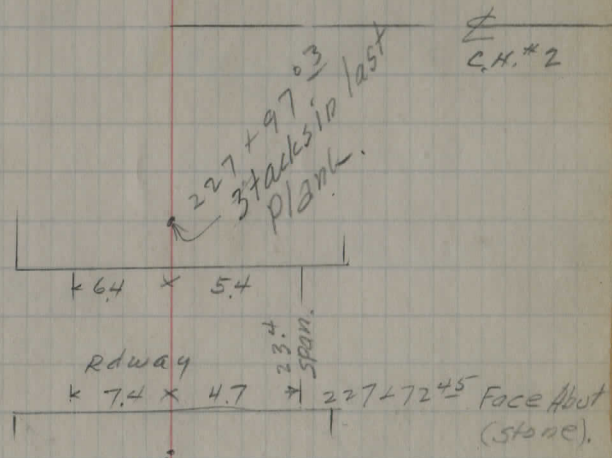 ℄
C.H. #2
227 + 97.03
3 tacks in last
plank.
6.4 x 5.4
23.4
span.
Rdway
7.4 x 4.7
227+72.45 Face Abut
(stone).